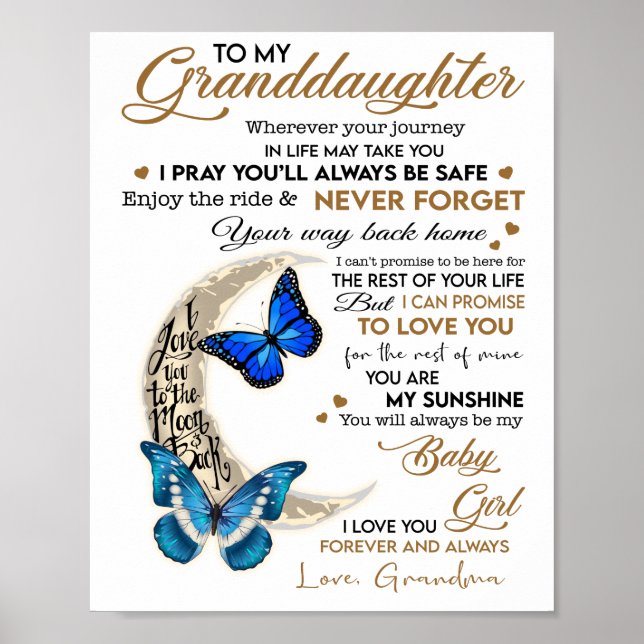 TO MY
Granddaughter
Wherever your journey
IN LIFE MAY TAKE YOU
I PRAY YOU'LL ALWAYS BE SAFE
Enjoy the ride & NEVER FORGET
Your way back home
I can't promise to be here for
THE REST OF YOUR LIFE
But I CAN PROMISE
TO LOVE YOU
for the rest of mine
YOU ARE
MY SUNSHINE
You will always be my
Baby
Girl
I LOVE YOU
FOREVER AND ALWAYS
Love, Grandma
I
Love
you
to the
Moon &
Back